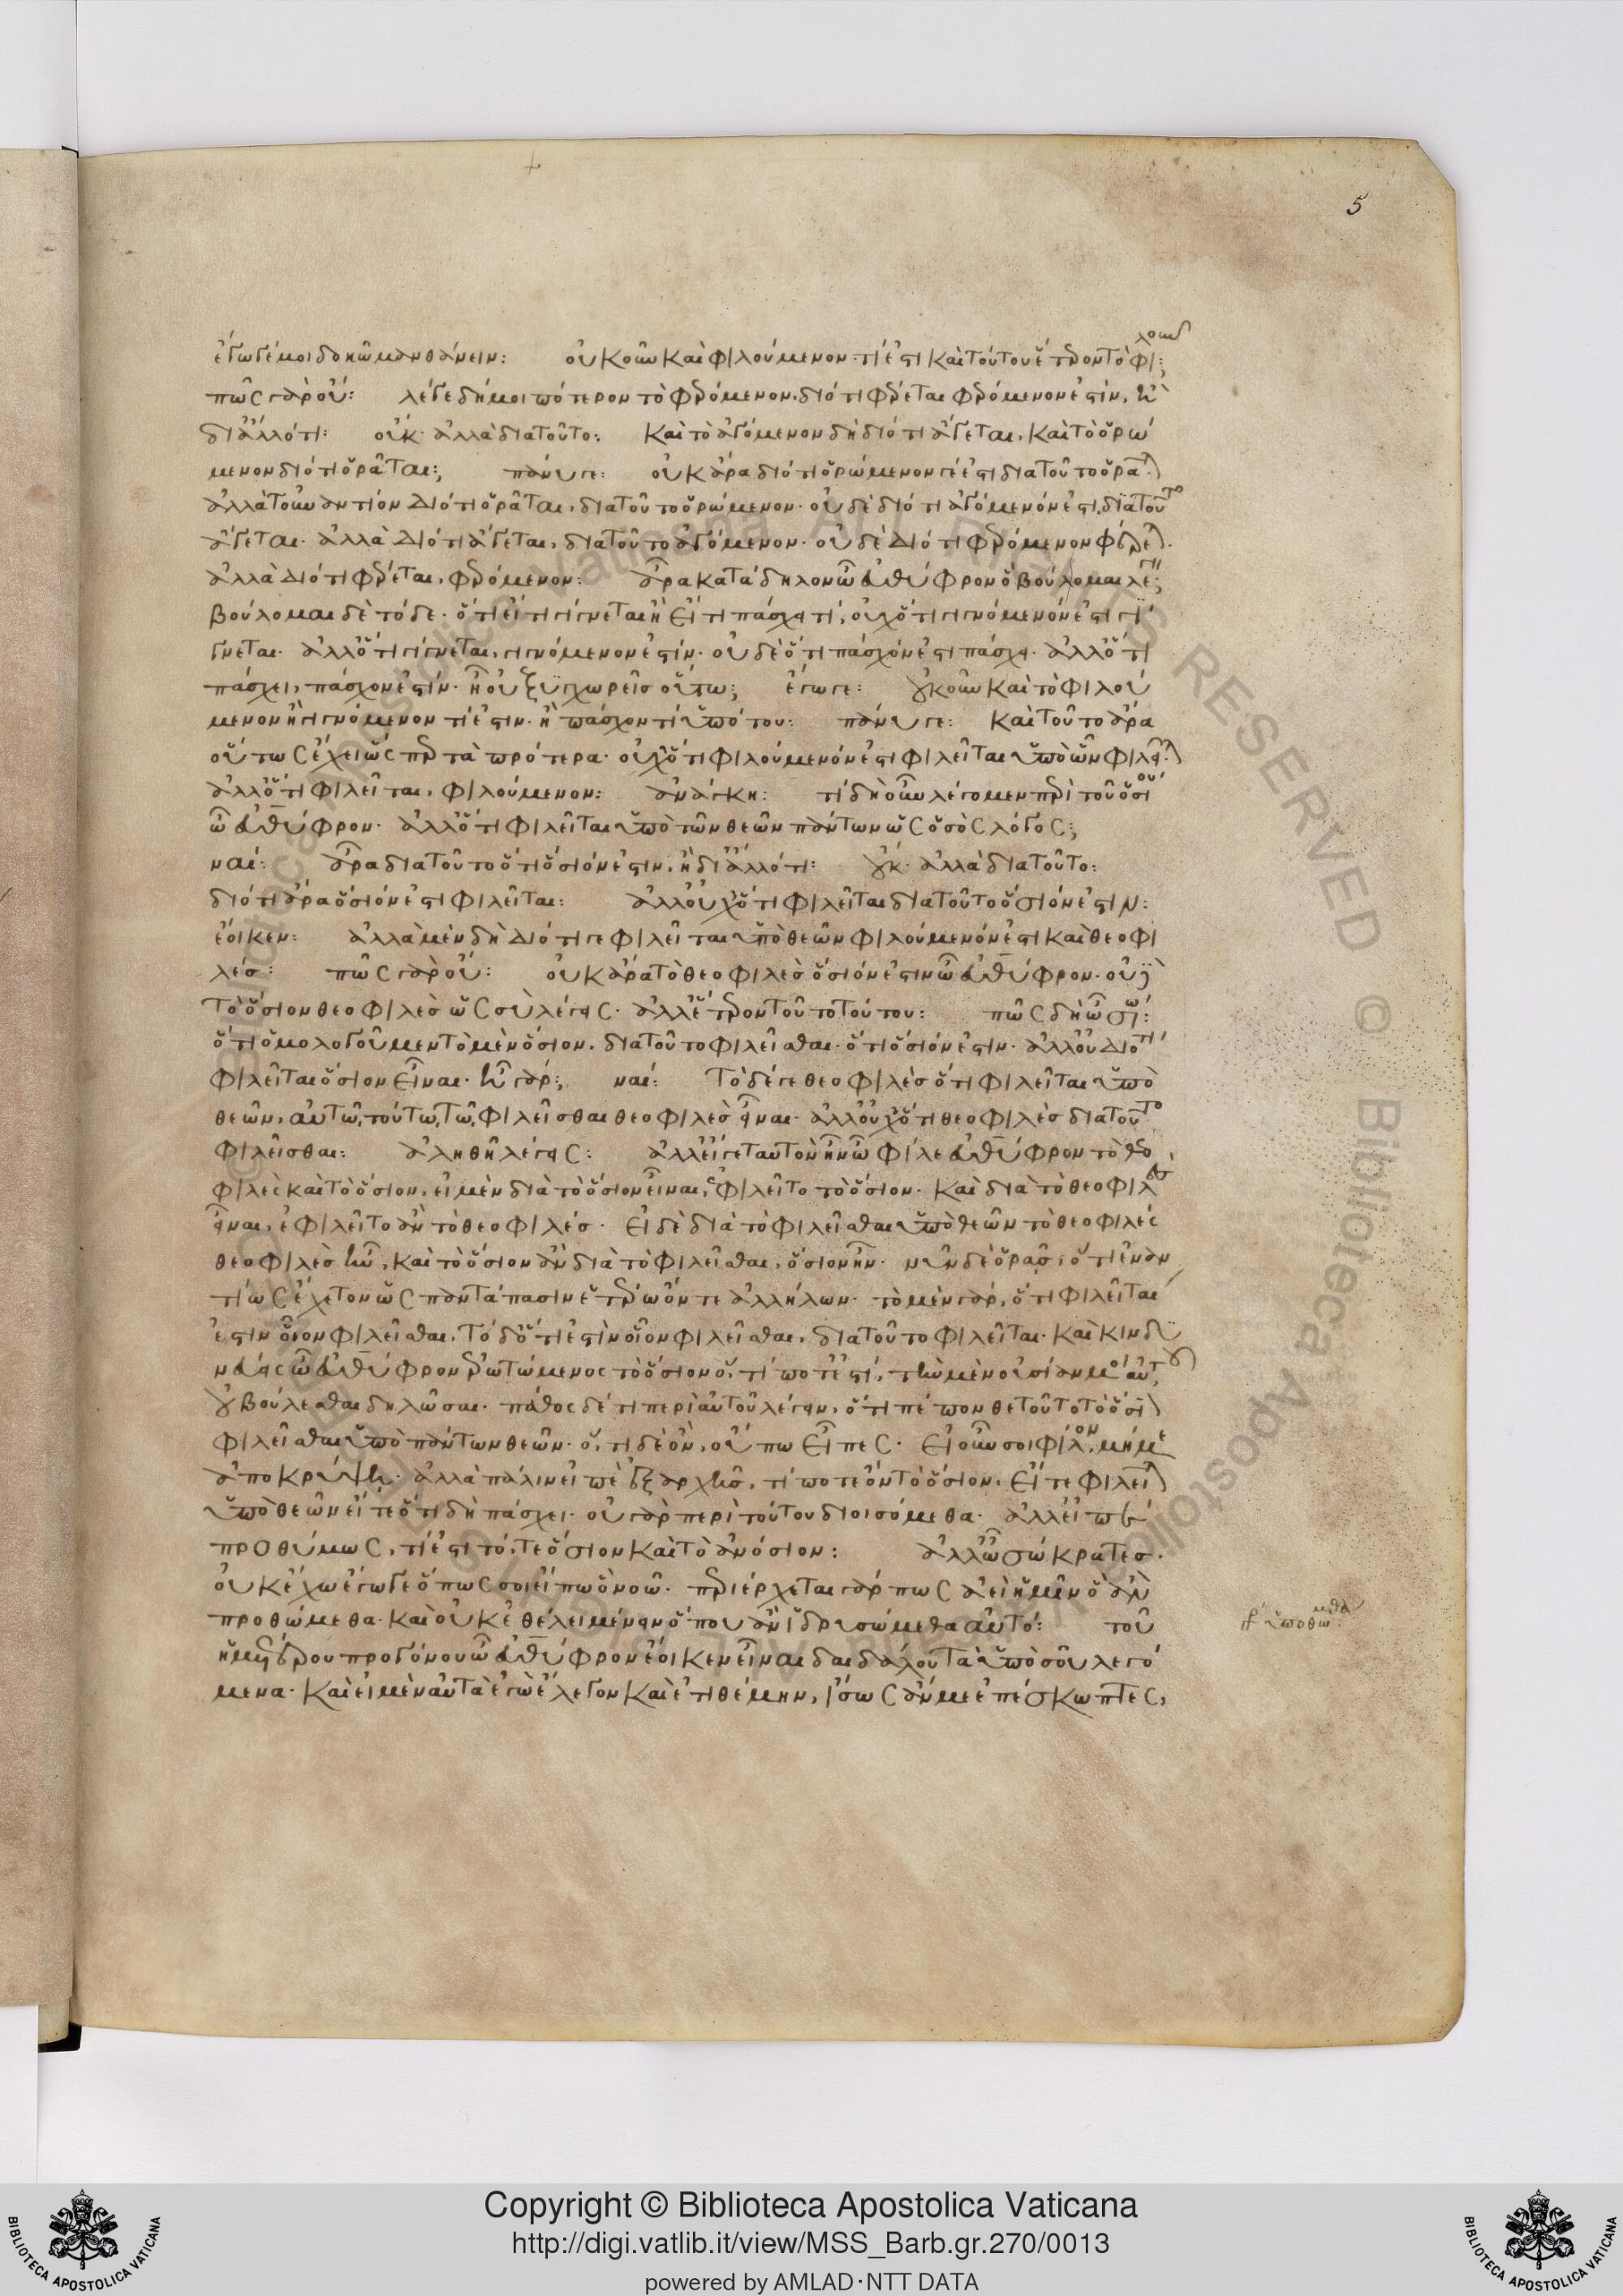 5
ἔγωγέ μοι δοκῶ μανθάνειν: οὐκοῦν καὶ φιλούμενόν τί ἐστι καὶ τούτου ἕτερον τὸ φιλοῦν;
πῶς γὰρ οὔ: λέγε δή μοι πότερον τὸ φερόμενον, διότι φέρεται φερόμενόν ἐστιν, ἢ
δι' ἄλλό τι: οὐκ· ἀλλὰ διὰ τοῦτο: καὶ τὸ ἀγόμενον δὴ διότι ἄγεται, καὶ τὸ ὁρώ
μενον διότι ὁρᾶται; πάνυ γε: οὐκ ἄρα διότι ὁρώμενόν γέ ἐστι διὰ τοῦτο ὁρᾶται
ἀλλὰ τοὐναντίον διότι ὁρᾶται, διὰ τοῦτο ὁρώμενον· οὐδὲ διότι ἀγόμενόν ἐστι, διὰ τοῦτο
ἄγεται· ἀλλὰ διότι ἄγεται, διὰ τοῦτο ἀγόμενον· οὐδὲ διότι φερόμενον φέρεται.
ἀλλὰ διότι φέρεται, φερόμενον: ἆρα κατάδηλον ὦ εὐθύφρον ὃ βούλομαι λέγειν;
βούλομαι δὲ τόδε· ὅτι εἴ τι γίγνεται ἢ εἴ τι πάσχει τί, οὐχ ὅτι γιγνόμενόν ἐστι γί
γνεται· ἀλλ' ὅτι γίγνεται, γιγνόμενόν ἐστίν· οὐδὲ ὅτι πάσχόν ἐστι πάσχει· ἀλλ' ὅτι
πάσχει, πάσχον ἐστίν· ἢ οὐ ξυγχωρεῖς οὕτω; ἔγωγε: οὐκοῦν καὶ τὸ φιλού
μενον ἢ γιγνόμενον τί ἐστιν· ἢ πάσχον τί ὑπό του: πάνυ γε: καὶ τοῦτο ἄρα
οὕτως ἔχει ὥσπερ τὰ πρότερα· οὐχ ὅτι φιλούμενόν ἐστι φιλεῖται ὑπὸ ὧν φιλεῖται
ἀλλ' ὅτι φιλεῖται, φιλούμενον: ἀνάγκη: τί δὴ οὖν λέγομεν περὶ τοῦ ὁσίου
ὦ εὐθύφρον· ἄλλό τι φιλεῖται ὑπὸ τῶν θεῶν πάντων ὡς ὁ σὸς λόγος;
ναί: ἆρα διὰ τοῦτο ὅτι ὅσιόν ἐστιν, ἢ δι' ἄλλό τι: οὐκ· ἀλλὰ διὰ τοῦτο:
διότι ἄρα ὅσιόν ἐστι φιλεῖται: ἀλλ' οὐχ ὅτι φιλεῖται διὰ τοῦτο ὅσιόν ἐστιν:
ἔοικεν: ἀλλὰ μὲν δὴ διότι γε φιλεῖται ὑπὸ θεῶν φιλούμενόν ἐστι καὶ θεοφι
λές: πῶς γὰρ οὔ: οὐκ ἄρα τὸ θεοφιλὲς ὅσιόν ἐστιν ὦ εὐθύφρον· οὐδὲ
τὸ ὅσιον θεοφιλὲς ὡς σὺ λέγεις· ἀλλ' ἕτερον τοῦτο τούτου: πῶς δὴ ὦ σώκρατες:
ὅτι ὁμολογοῦμεν τὸ μὲν ὅσιον, διὰ τοῦτο φιλεῖσθαι· ὅτι ὅσιόν ἐστιν· ἀλλ' οὐ διότι
φιλεῖται ὅσιον εἶναι· ἦ γάρ; ναί: τὸ δέ γε θεοφιλὲς ὅτι φιλεῖται ὑπὸ
θεῶν, αὐτῷ τούτῳ τῷ φιλεῖσθαι θεοφιλὲς εἶναι· ἀλλ' οὐχ ὅτι θεοφιλὲς διὰ τοῦτο
φιλεῖσθαι: ἀληθῆ λέγεις: ἀλλ' εἴ γε ταὐτὸν ἦν ὦ φίλε εὐθύφρον τὸ θεο
φιλὲς καὶ τὸ ὅσιον, εἰ μὲν διὰ τὸ ὅσιον εἶναι, ἐφιλεῖτο τὸ ὅσιον· καὶ διὰ τὸ θεοφιλὲς
εἶναι, ἐφιλεῖτο ἂν τὸ θεοφιλές· εἰ δὲ διὰ τὸ φιλεῖσθαι ὑπὸ θεῶν τὸ θεοφιλὲς
θεοφιλὲς ἦν, καὶ τὸ ὅσιον ἂν διὰ τὸ φιλεῖσθαι, ὅσιον ἦν· νῦν δὲ ὁρᾷς, ὅτι ἐναν
τίως ἔχετον ὡς παντάπασιν ἑτέρω ὄντε ἀλλήλων· τὸ μὲν γάρ, ὅτι φιλεῖται
ἐστὶν οἷον φιλεῖσθαι, τὸ δ' ὅτι ἐστὶν οἷον φιλεῖσθαι, διὰ τοῦτο φιλεῖται· καὶ κινδυ
νεύεις ὦ εὐθύφρον ἐρωτώμενος τὸ ὅσιον ὅ, τί ποτ' ἐστί, τὴν μὲν οὐσίαν μοι αὐτοῦ
οὐ βούλεσθαι δηλῶσαι· πάθος δέ τι περὶ αὐτοῦ λέγειν, ὅτι πέπονθε τοῦτο τὸ ὅσιον
φιλεῖσθαι ὑπὸ πάντων θεῶν· ὅ, τι δὲ ὄν, οὔπω εἶπες· εἰ οὖν σοι φίλον, μή με
ἀποκρύψῃ· ἀλλὰ πάλιν εἰπὲ ἐξ ἀρχῆς, τί ποτε ὂν τὸ ὅσιον, εἴτε φιλεῖται
ὑπὸ θεῶν εἴτε ὅτι δὴ πάσχει· οὐ γὰρ περὶ τούτου διοισόμεθα· ἀλλ' εἰπὲ
προθύμως, τί ἐστι τό, τε ὅσιον καὶ τὸ ἀνόσιον: ἀλλ' ὦ σώκρατες.
οὐκ ἔχω ἔγωγε ὅπως σοι εἴπω ὃ νοῶ· περιέρχεται γάρ πως ἀεὶ ἡμῖν ὃ ἂν
προθώμεθα· καὶ οὐκ ἐθέλει μένειν ὅπου ἂν ἱδρυσώμεθα αὐτό: τοῦ
ὑποθώμεθα
ἡμετέρου προγόνου ὦ εὐθύφρον ἔοικεν εἶναι δαιδάλου τὰ ὑπὸ σοῦ λεγό
μενα· καὶ εἰ μὲν αὐτὰ ἐγὼ ἔλεγον καὶ ἐτιθέμην, ἴσως ἄν με ἐπέσκωπτες,
BIBLIOTECA APOSTOLICA VATICANA
Copyright © Biblioteca Apostolica Vaticana
http://digi.vatlib.it/view/MSS_Barb.gr.270/0013
powered by AMLAD·NTT DATA
BIBLIOTECA APOSTOLICA VATICANA